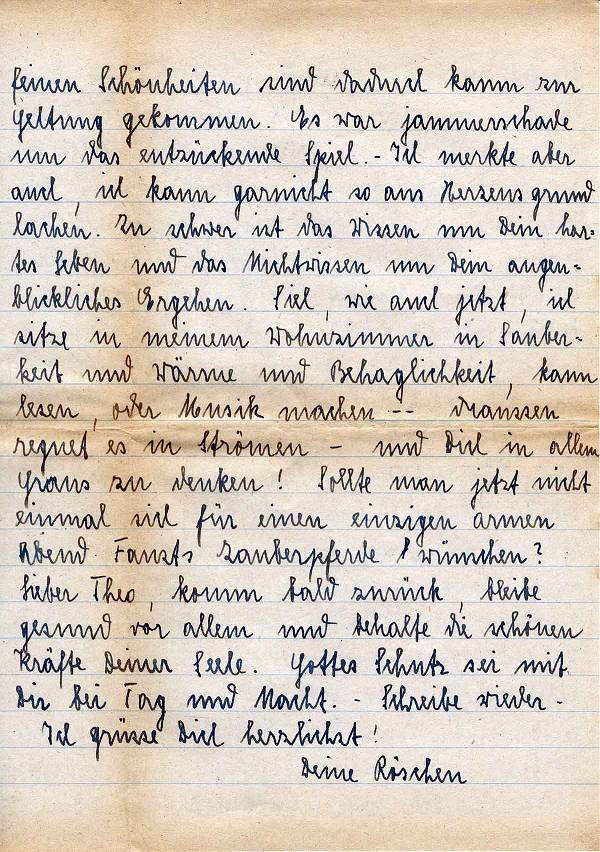 feinen Schönheiten sind dadurch kaum zur
Geltung gekommen. Es war jammerschade
um das entzückende Spiel. - Ich merkte aber
auch, ich kann garnicht so aus Herzens grund
lachen. Zu schwer ist das Wissen um Dein har-
tes Leben und das Nichtwissen um Dein augen-
blickliches Ergehen. Sieh, wie auch jetzt, ich
sitze in meinem Wohnzimmer in Sauber-
keit und Wärme und Behaglichkeit, kann
lesen, oder Musik machen -- draussen
regnet es in Strömen - und Dich in allem
Graus zu denken! Sollte man jetzt nicht
einmal sich für einen einzigen armen
Abend Fausts Zauberpferde wünschen?
Lieber Theo, komm bald zurück, bleibe
gesund vor allem und behalte die schönen
Kräfte Deiner Seele. Gottes Schutz sei mit
Dir bei Tag und Nacht. - Schreibe wieder -
Ich grüsse Dich herzlichst!
Deine Röschen